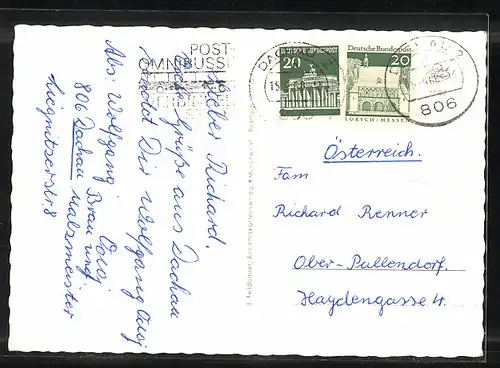 POST
OMNIBUSSE
DACHAU 2
806
Deutsche Bundespost
20
Deutsche Bundespost
20
LORSCH/HESSEN
Lieber Richard.
Grüße aus Dachau
sendet Dir Wolfgang
Abs. Wolfgang
Brau und
806 Dachau Malzmeister
Liegnitzerstr. 8
Österreich.
Fam
Richard Renner
Ober-Pullendorf.
Haydengasse 4.